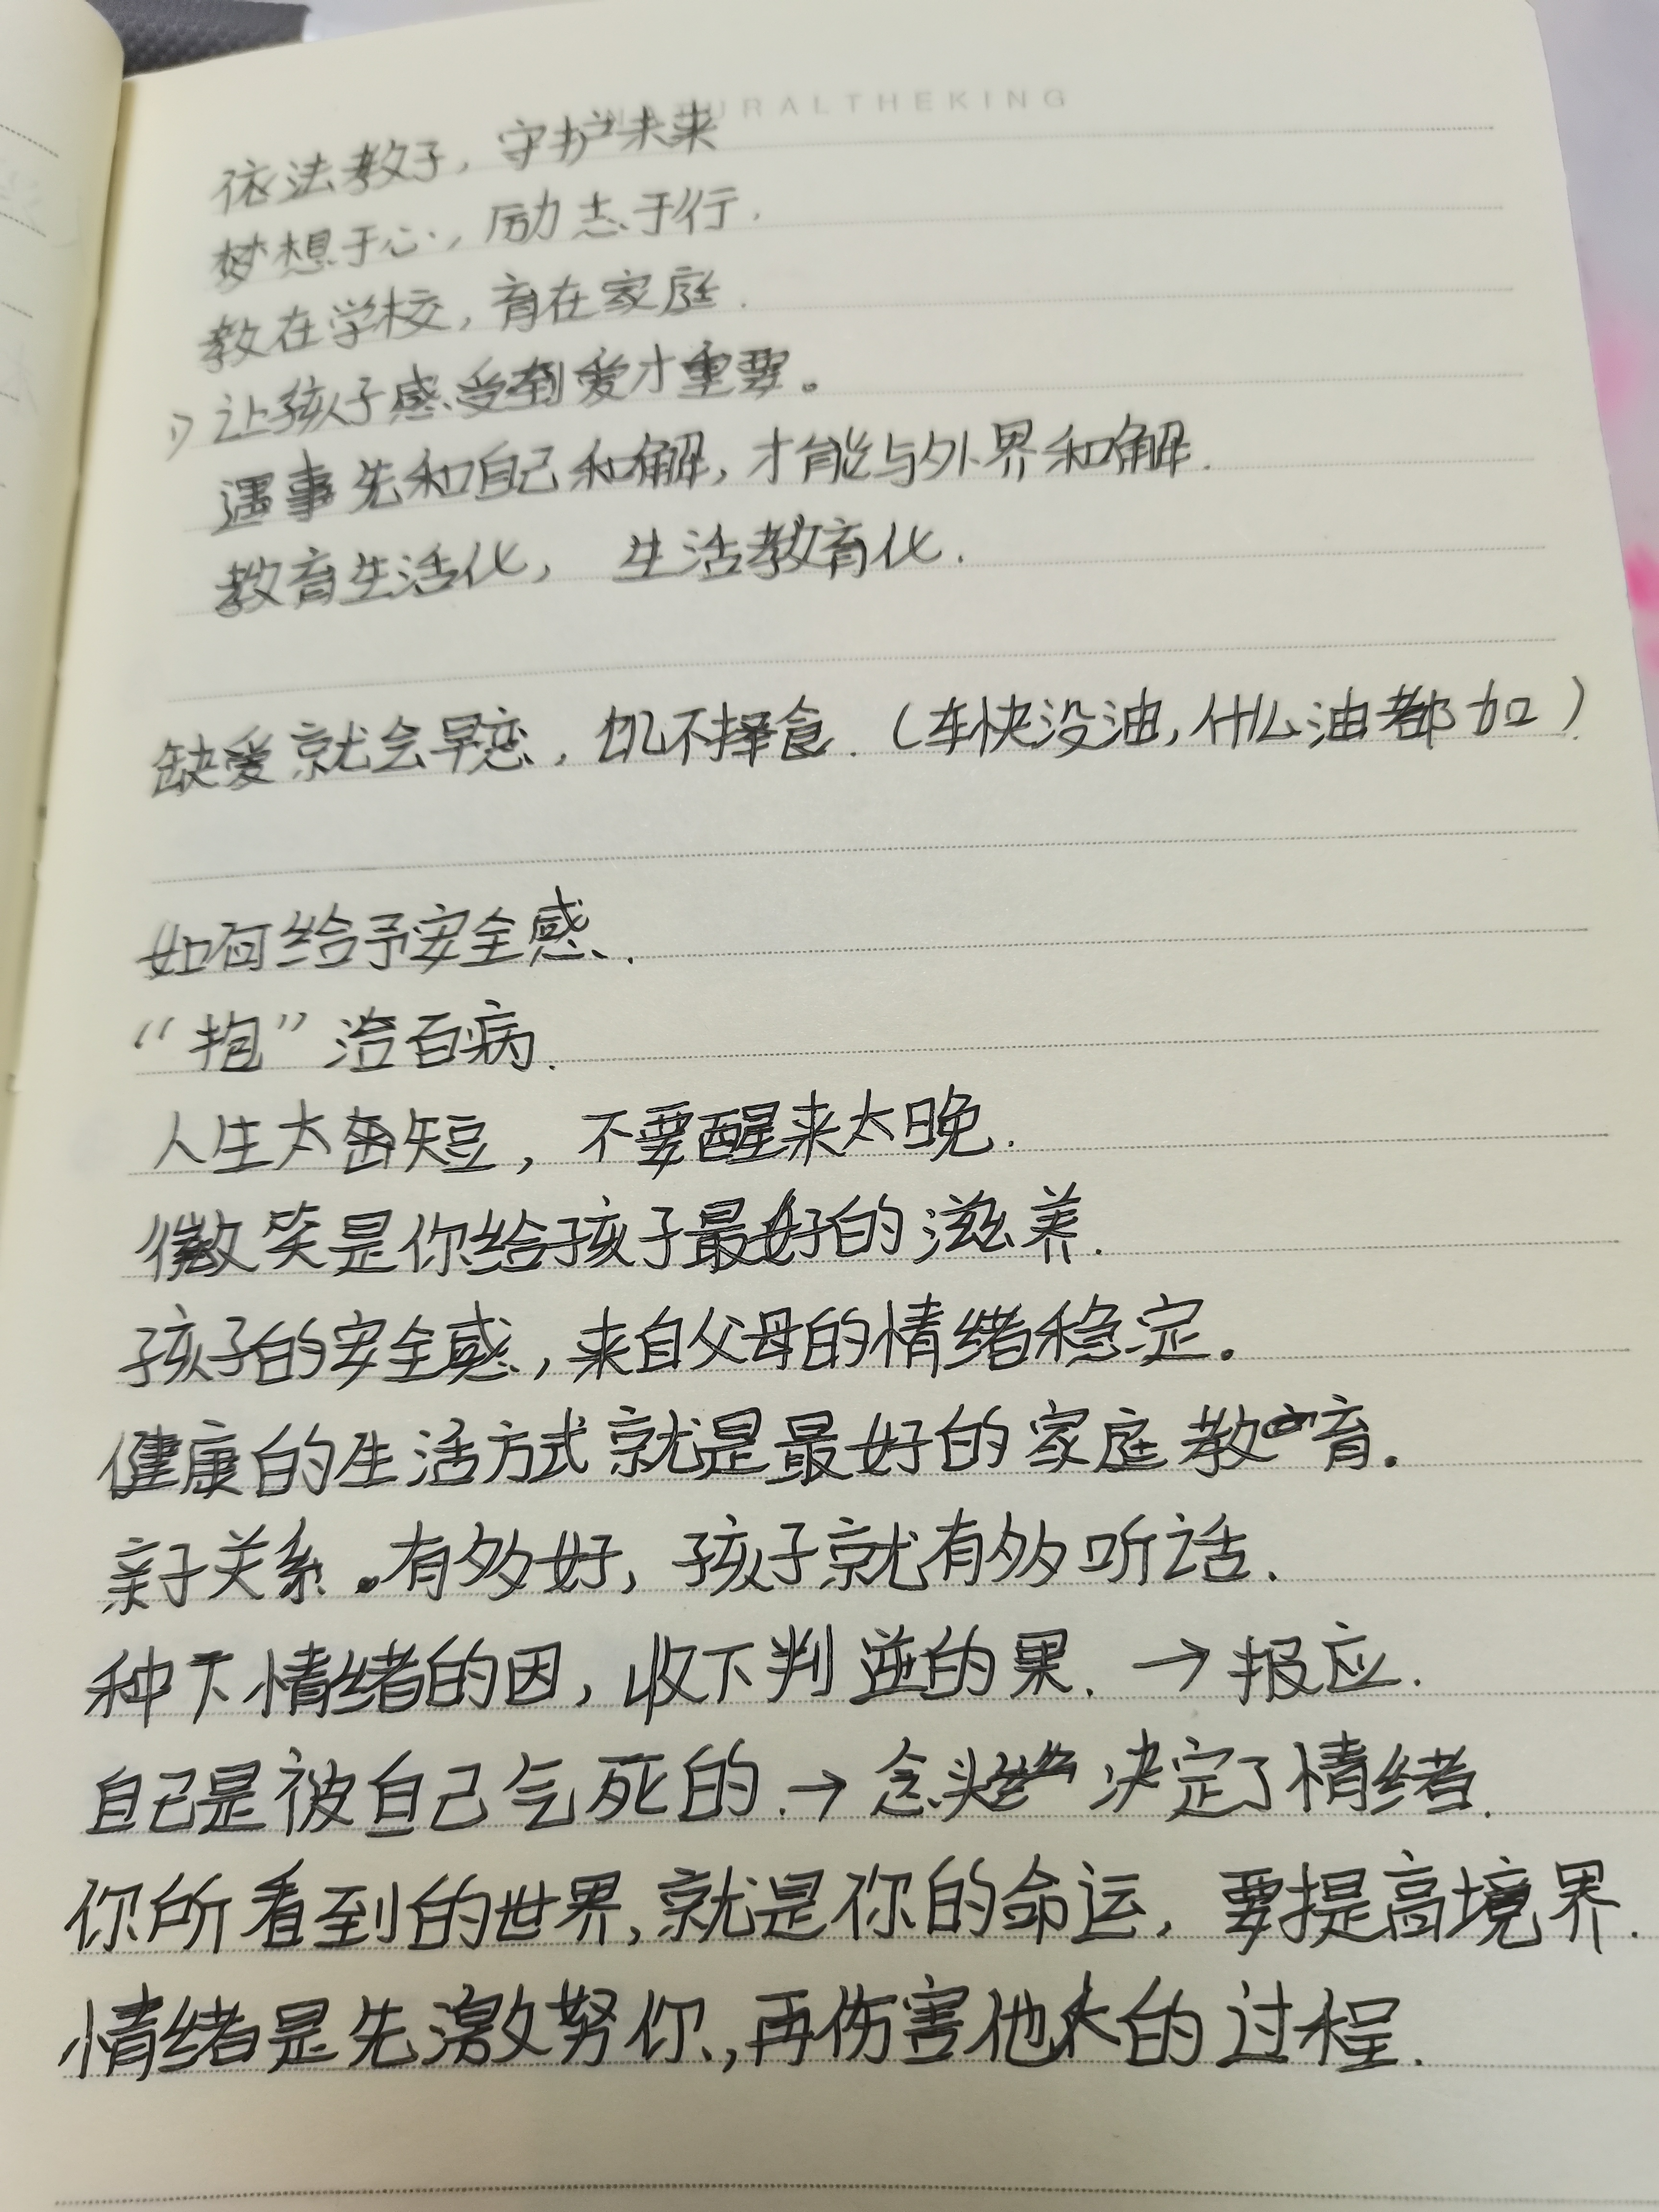 NATURALTHEKING
依法教子，守护未来
梦想于心，励志于行.
教在学校，育在家庭.
让孩子感受到爱才重要。
遇事先和自己和解，才能与外界和解.
教育生活化， 生活教育化.
缺爱就会早恋，饥不择食.（车快没油，什么油都加）
如何给予安全感.
“抱”治百病.
人生太短，不要醒来太晚.
微笑是你给孩子最好的滋养.
孩子的安全感，来自父母的情绪稳定.
健康的生活方式就是最好的家庭教育.
亲子关系.有多好，孩子就有多听话.
种下情绪的因，收下判逆的果. → 报应.
自己是被自己气死的.→ 念头 决定了情绪.
你所看到的世界，就是你的命运，要提高境界.
情绪是先激努你，再伤害他人的过程.